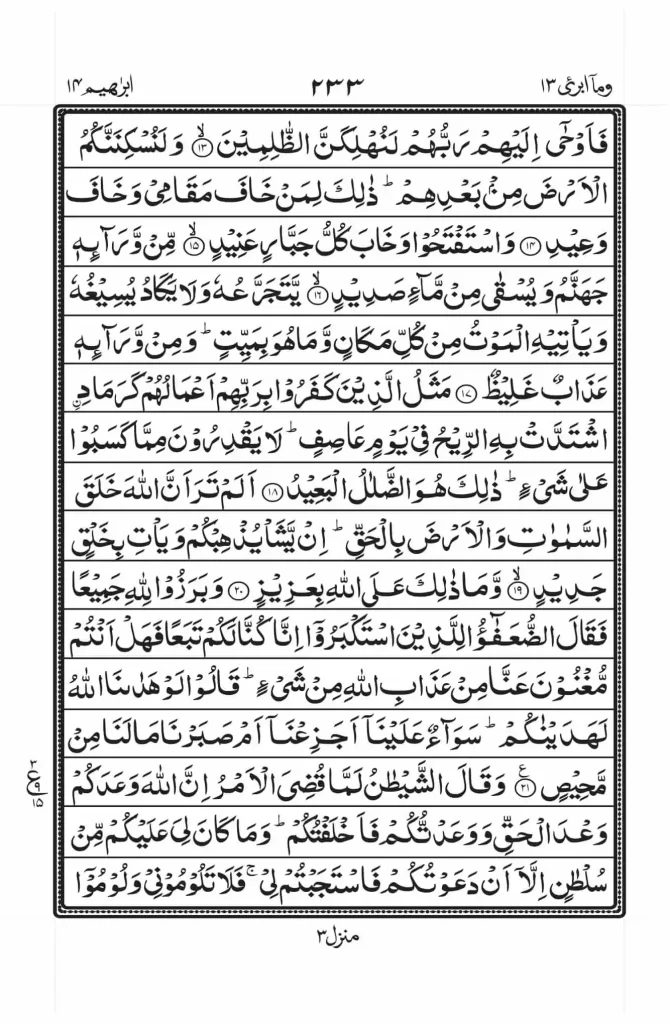 وماۤ ابرئ ۱۳ ۲۳۳ ابرٰھیم ۱۴
فَاَوْحٰۤى اِلَيْهِمْ رَبُّهُمْ لَنُهْلِكَنَّ الظّٰلِمِيْنَ ۙ﴿۱۳﴾ وَ لَنُسْكِنَنَّكُمُ
الْاَرْضَ مِنْۢ بَعْدِهِمْ ؕ ذٰلِكَ لِمَنْ خَافَ مَقَامِيْ وَ خَافَ
وَعِيْدِ ﴿۱۴﴾ وَ اسْتَفْتَحُوْا وَ خَابَ كُلُّ جَبَّارٍ عَنِيْدٍ ۙ﴿۱۵﴾ مِّنْ وَّرَآىِٕهٖ
جَهَنَّمُ وَ يُسْقٰى مِنْ مَّآءٍ صَدِيْدٍ ۙ﴿۱۶﴾ يَّتَجَرَّعُهٗ وَ لَا يَكَادُ يُسِيْغُهٗ
وَ يَاْتِيْهِ الْمَوْتُ مِنْ كُلِّ مَكَانٍ وَّ مَا هُوَ بِمَيِّتٍ ؕ وَ مِنْ وَّرَآىِٕهٖ
عَذَابٌ غَلِيْظٌ ﴿۱۷﴾ مَثَلُ الَّذِيْنَ كَفَرُوْا بِرَبِّهِمْ اَعْمَالُهُمْ كَرَمَادِ ۣ
اشْتَدَّتْ بِهِ الرِّيْحُ فِيْ يَوْمٍ عَاصِفٍ ؕ لَا يَقْدِرُوْنَ مِمَّا كَسَبُوْا
عَلٰى شَيْءٍ ؕ ذٰلِكَ هُوَ الضَّلٰلُ الْبَعِيْدُ ﴿۱۸﴾ اَلَمْ تَرَ اَنَّ اللّٰهَ خَلَقَ
السَّمٰوٰتِ وَ الْاَرْضَ بِالْحَقِّ ؕ اِنْ يَّشَاْ يُذْهِبْكُمْ وَ يَاْتِ بِخَلْقٍ
جَدِيْدٍ ۙ﴿۱۹﴾ وَّ مَا ذٰلِكَ عَلَى اللّٰهِ بِعَزِيْزٍ ﴿۲۰﴾ وَ بَرَزُوْا لِلّٰهِ جَمِيْعًا
فَقَالَ الضُّعَفٰٓؤُا لِلَّذِيْنَ اسْتَكْبَرُوْۤا اِنَّا كُنَّا لَكُمْ تَبَعًا فَهَلْ اَنْتُمْ
مُّغْنُوْنَ عَنَّا مِنْ عَذَابِ اللّٰهِ مِنْ شَيْءٍ ؕ قَالُوْا لَوْ هَدٰىنَا اللّٰهُ
لَهَدَيْنٰكُمْ ؕ سَوَآءٌ عَلَيْنَاۤ اَجَزِعْنَاۤ اَمْ صَبَرْنَا مَا لَنَا مِنْ
مَّحِيْصٍ ﴿۲۱﴾ؑ وَ قَالَ الشَّيْطٰنُ لَمَّا قُضِيَ الْاَمْرُ اِنَّ اللّٰهَ وَعَدَكُمْ
۲ ع ۹ ۱۵
وَعْدَ الْحَقِّ وَ وَعَدْتُّكُمْ فَاَخْلَفْتُكُمْ ؕ وَ مَا كَانَ لِيَ عَلَيْكُمْ مِّنْ
سُلْطٰنٍ اِلَّاۤ اَنْ دَعَوْتُكُمْ فَاسْتَجَبْتُمْ لِيْ ۚ فَلَا تَلُوْمُوْنِيْ وَ لُوْمُوْۤا
منزل ۳